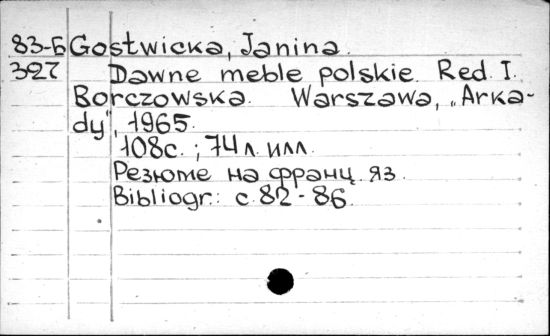 83-Б Gostwicka, Janina.
327 Dawne meble polskie. Red. I.
Borczowska. Warszawa, „Arka-
dy", 1965.
108с.; 74 л. илл.
Резюме на франц. яз.
Bibliogr.: с. 82-86.